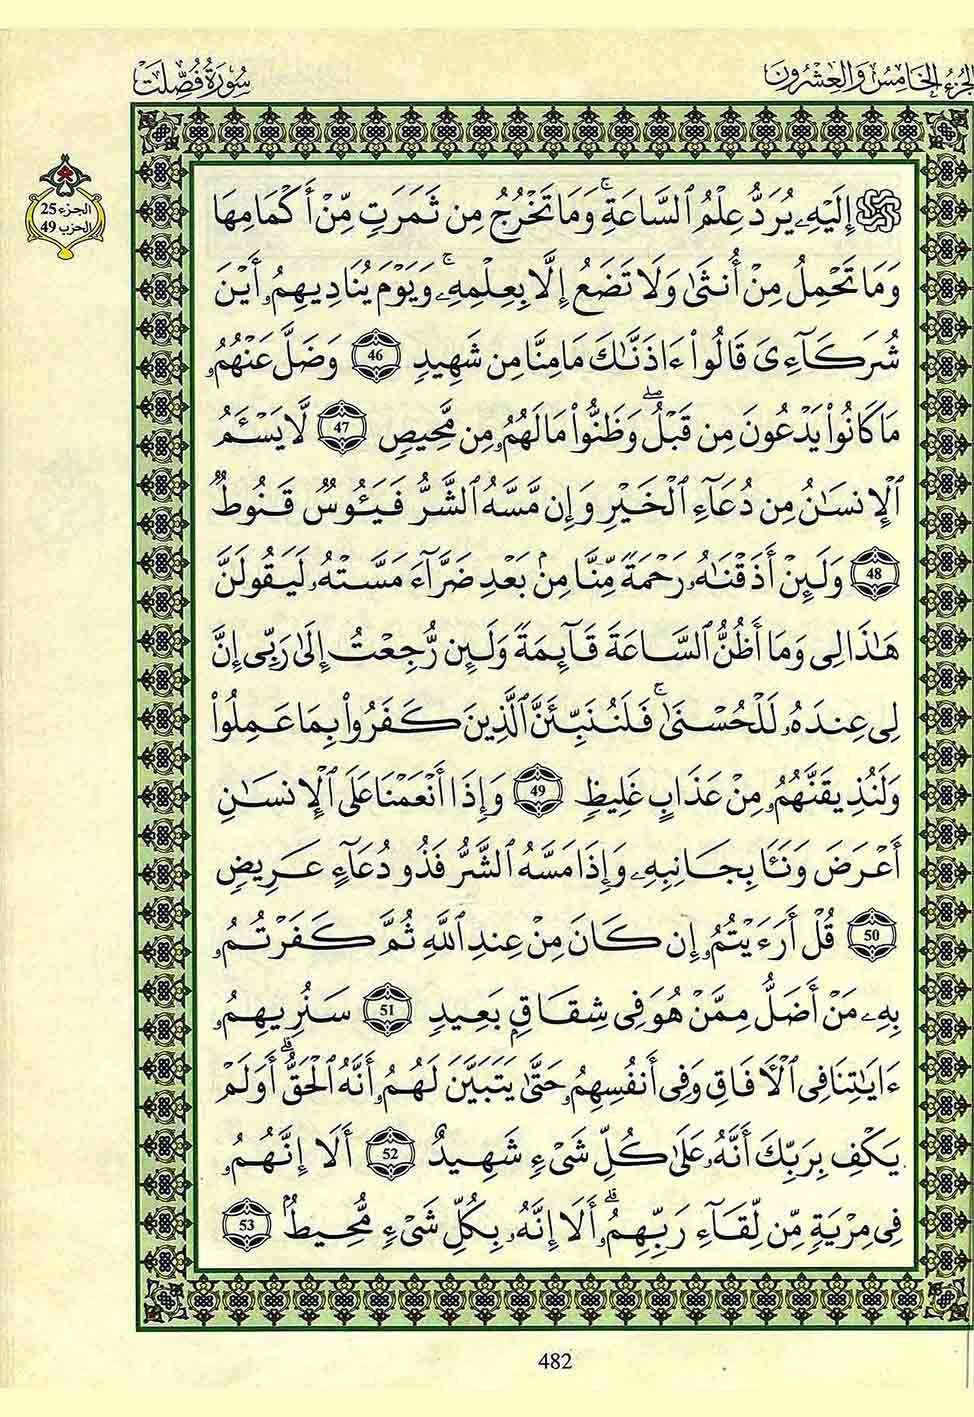 الجزء الخامس والعشرون
سُورَةُ فُصِّلَتْ
الجزء 25
الحزب 49
إِلَيْهِۦ يُرَدُّ عِلْمُ اُ۬لسَّاعَةِۚ وَمَا تَخْرُجُ مِن ثَمَرَٰتٖ مِّنْ أَكْمَامِهَا
وَمَا تَحْمِلُ مِنْ أُنثَىٰ وَلَا تَضَعُ إِلَّا بِعِلْمِهِۦۚ وَيَوْمَ يُنَادِيهِمُۥ أَيْنَ
شُرَكَآءِىَ قَالُواْ ءَاذَنَّٰكَ مَا مِنَّا مِن شَهِيدٖ 46 وَضَلَّ عَنْهُمُۥ
مَا كَانُواْ يَدْعُونَ مِن قَبْلُۖ وَظَنُّواْ مَا لَهُمُۥ مِن مَّحِيصٖ 47 لَّا يَسْـَٔمُ
اُ۬لْإِنسَٰنُ مِن دُعَآءِ اِ۬لْخَيْرِ وَإِن مَّسَّهُ اُ۬لشَّرُّ فَيَـُٔوسٞ قَنُوطٞ
48 وَلَئِنْ أَذَقْنَٰهُۥ رَحْمَةٗ مِّنَّا مِنۢ بَعْدِ ضَرَّآءَ مَسَّتْهُۥ لَيَقُولَنَّ
هَٰذَا لِى وَمَا أَظُنُّ اُ۬لسَّاعَةَ قَآئِمَةٗ وَلَئِن رُّجِعْتُ إِلَىٰ رَبِّى إِنَّ
لِى عِندَهُۥ لَلْحُسْنَىٰۚ فَلَنُنَبِّئَنَّ اَ۬لَّذِينَ كَفَرُواْ بِمَا عَمِلُواْ
وَلَنُذِيقَنَّهُمُۥ مِنْ عَذَابٍ غَلِيظٖ 49 وَإِذَا أَنْعَمْنَا عَلَى اَ۬لْإِنسَٰنِ
أَعْرَضَ وَنَـَٔا بِجَانِبِهِۦ وَإِذَا مَسَّهُ اُ۬لشَّرُّ فَذُو دُعَآءٍ عَرِيضٖ
50 قُلْ أَرَءَيْتُمُۥ إِن كَانَ مِنْ عِندِ اِ۬للَّهِ ثُمَّ كَفَرْتُمُۥ
بِهِۦ مَنْ أَضَلُّ مِمَّنْ هُوَ فِى شِقَاقِۭ بَعِيدٖ 51 سَنُرِيهِمُۥ
ءَايَٰتِنَا فِى اِ۬لْأٓفَاقِ وَفِى أَنفُسِهِمُۥ حَتَّىٰ يَتَبَيَّنَ لَهُمُۥ أَنَّهُ اُ۬لْحَقُّۗ أَوَلَمْ
يَكْفِ بِرَبِّكَ أَنَّهُۥ عَلَىٰ كُلِّ شَىْءٖ شَهِيدٌ 52 أَلَا إِنَّهُمُۥ
فِى مِرْيَةٖ مِّن لِّقَآءِ رَبِّهِمُۥۗ أَلَا إِنَّهُۥ بِكُلِّ شَىْءٖ مُّحِيطُۢ 53
482